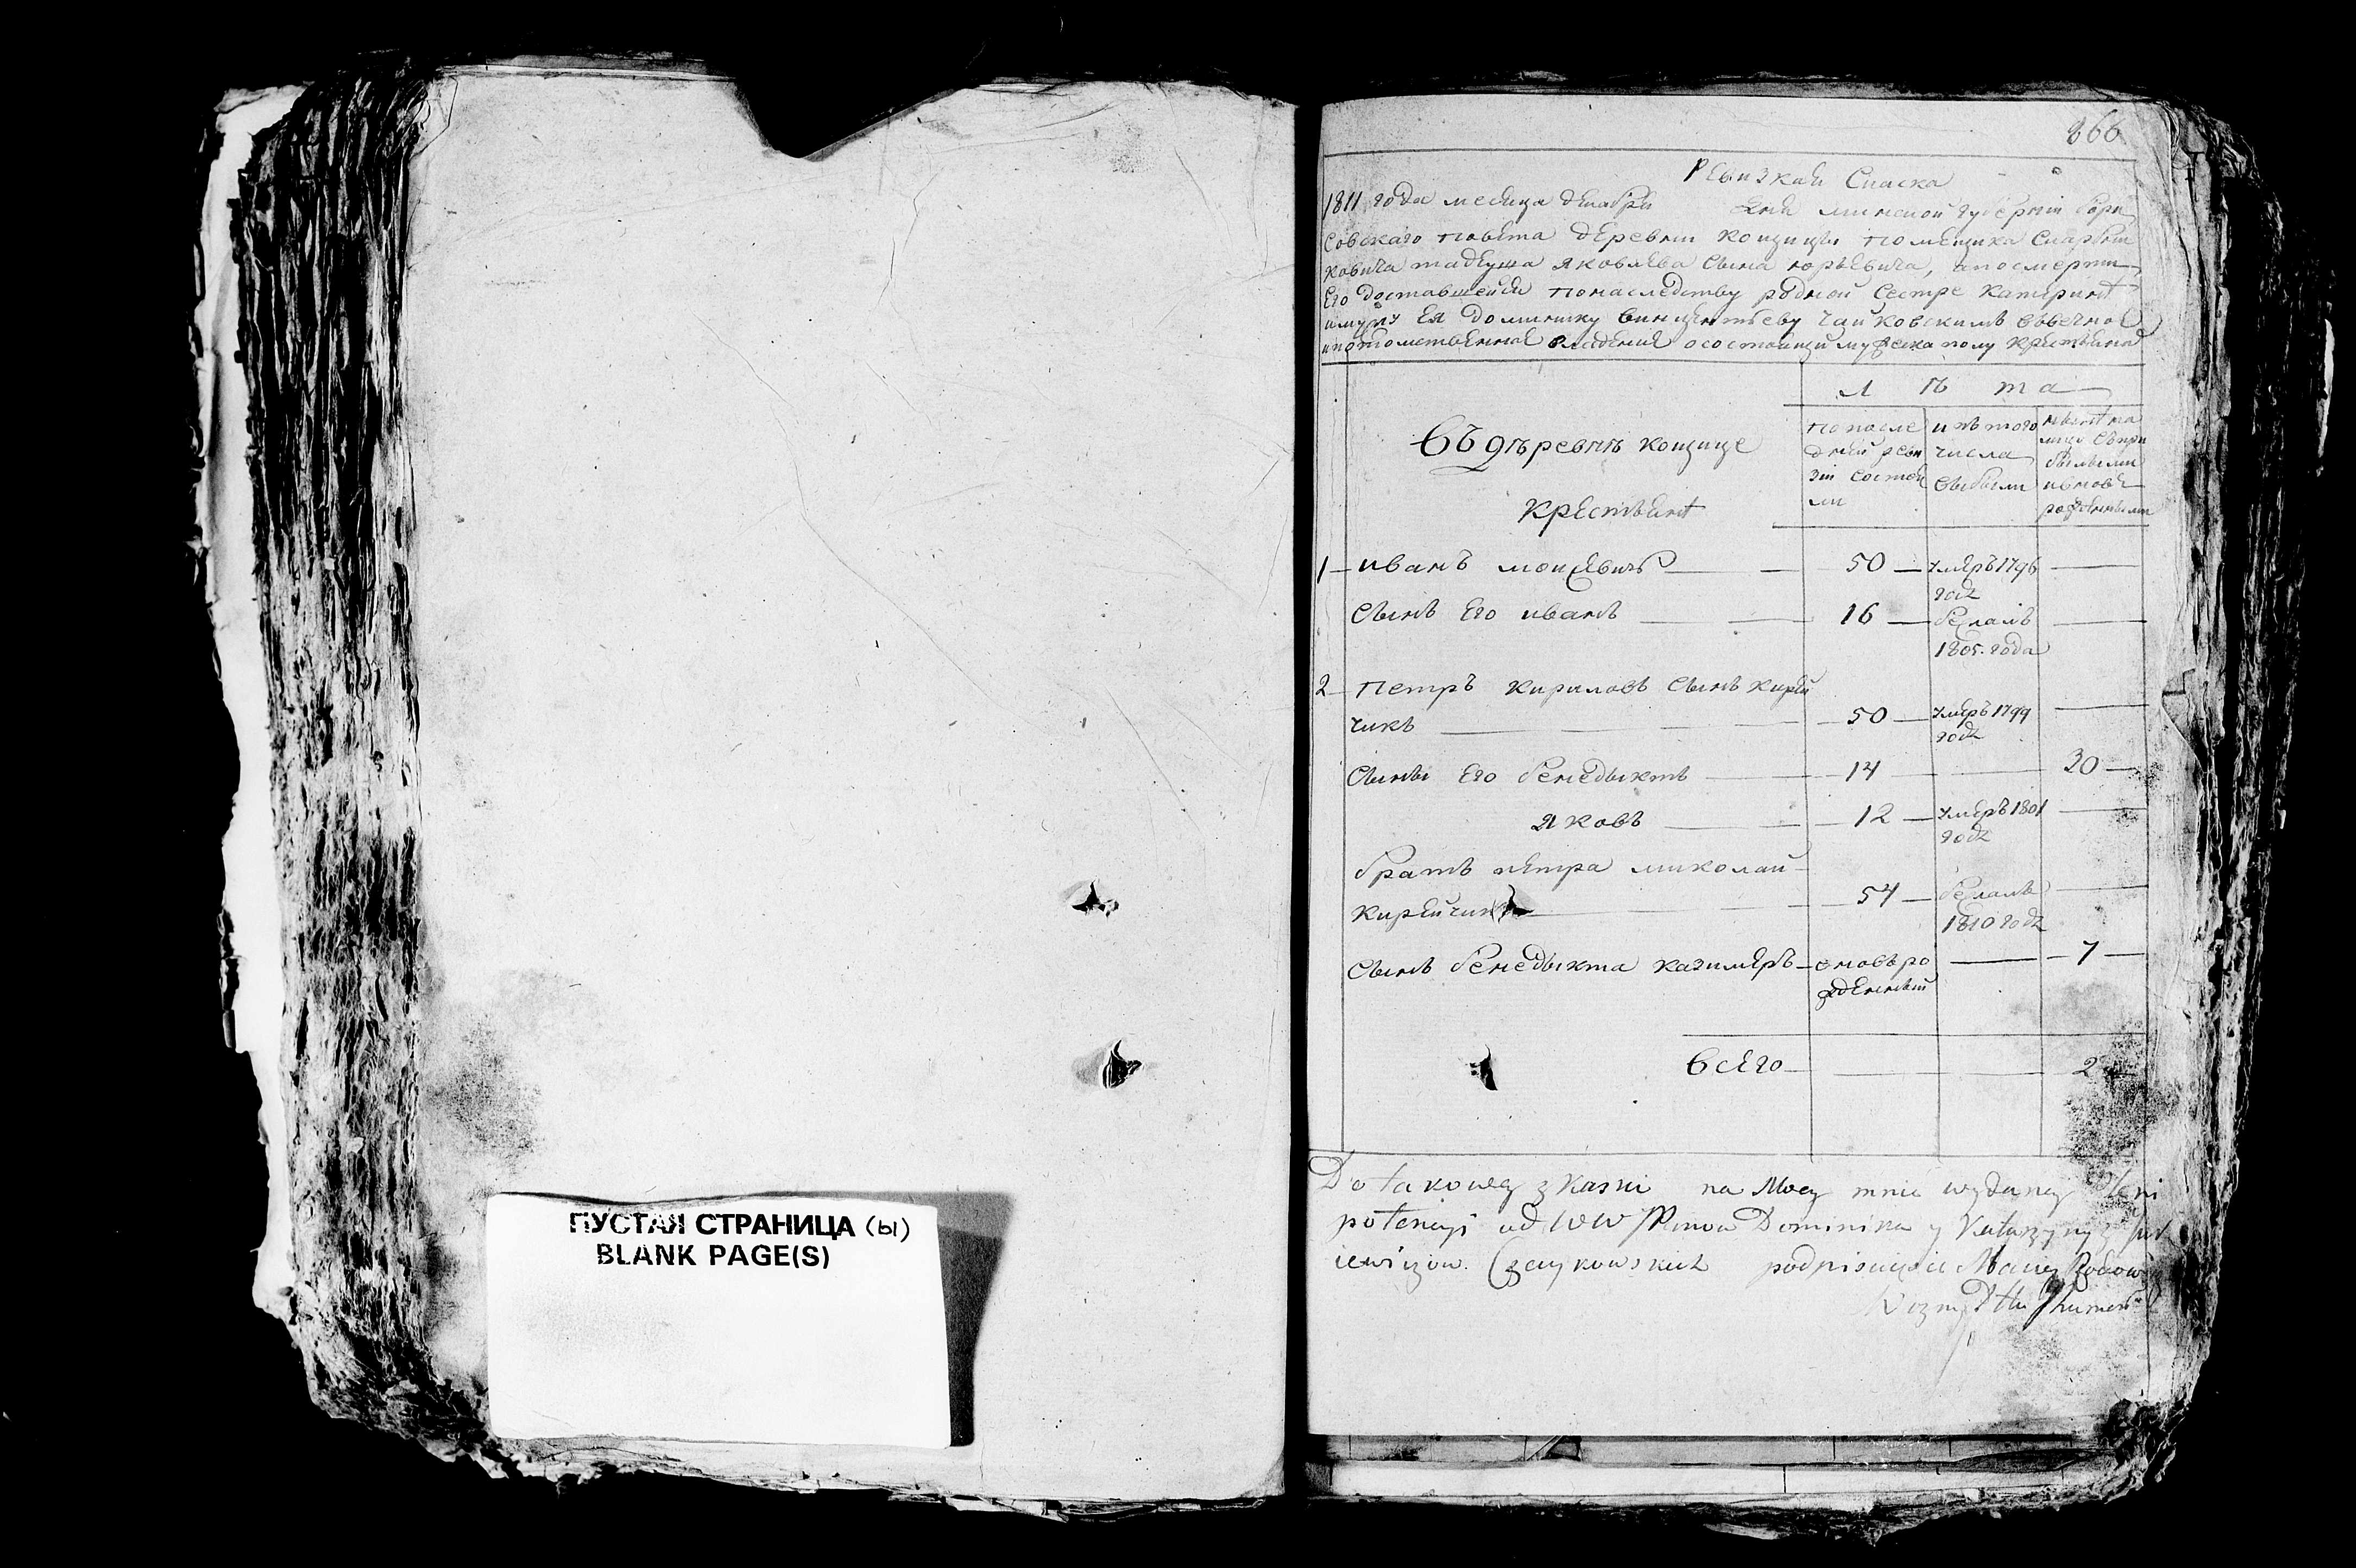 ПУСТАЯ СТРАНИЦА (ы)
BLANK PAGE(S)
866
Ревизкая Сказка
1811 года месяца декабря дня минской губернии бори
совского повета деревни Кощицы помещика
ковича тадеуша яковлева сына юрьевича, а по смерти
Его доставшейся по наследству родной Сестре Катерине
и мужу Ея доминику винцентьеву чайковскимъ в вечное
и потомственное владение о состоящих мужеска полу крестьянъ
Лѣта
въ дѣревнѣ кощице
Крестьянъ
по после
дней реви
зiи состоя
ли
изъ того
числа
выбыли
ныне на
лицо съ при
былыми
и вновь
рожденными
1 иванъ 50 умеръ 1796
годъ
Сынъ Его иванъ 16 бежалъ
1805 года
2 петръ кириловъ Сынъ Кирей
чикъ 50 умеръ 1799
годъ
Сыны Его бенедыктъ 14 30
яковъ 12 умеръ 1801
годъ
братъ петра миколай
Кирейчикъ 54 бежалъ
1810 годъ
Сынъ бенедыкта казимеръ вновь ро
жденный 7
Всего 2
Do takowey z kaski na Mocy mnie wydaney Pleni
potencyi od WW Dominika y Katarzyny z Jur
iewiczow Czaykowskich podpisuje